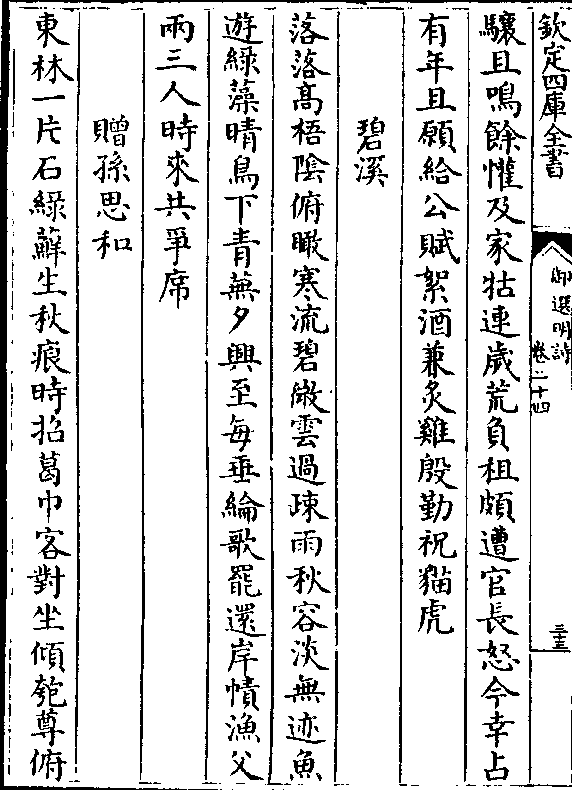 欽定四庫全書
御選明詩
卷二十四
三三
驤且鳴餘懽及家牯連歲荒負租頗遭官長怒今幸占
有年且願給公賦絮酒兼炙雞殷勤祝貓虎
碧溪
落落高梧陰俯瞰寒流碧微雲過疎雨秋容淡無迹魚
遊綠藻晴鳥下青蕪夕興至每垂綸歌罷還岸幘漁父
兩三人時來共爭席
贈孫思和
東林一片石綠蘚生秋痕時招葛巾客對坐傾匏尊俯